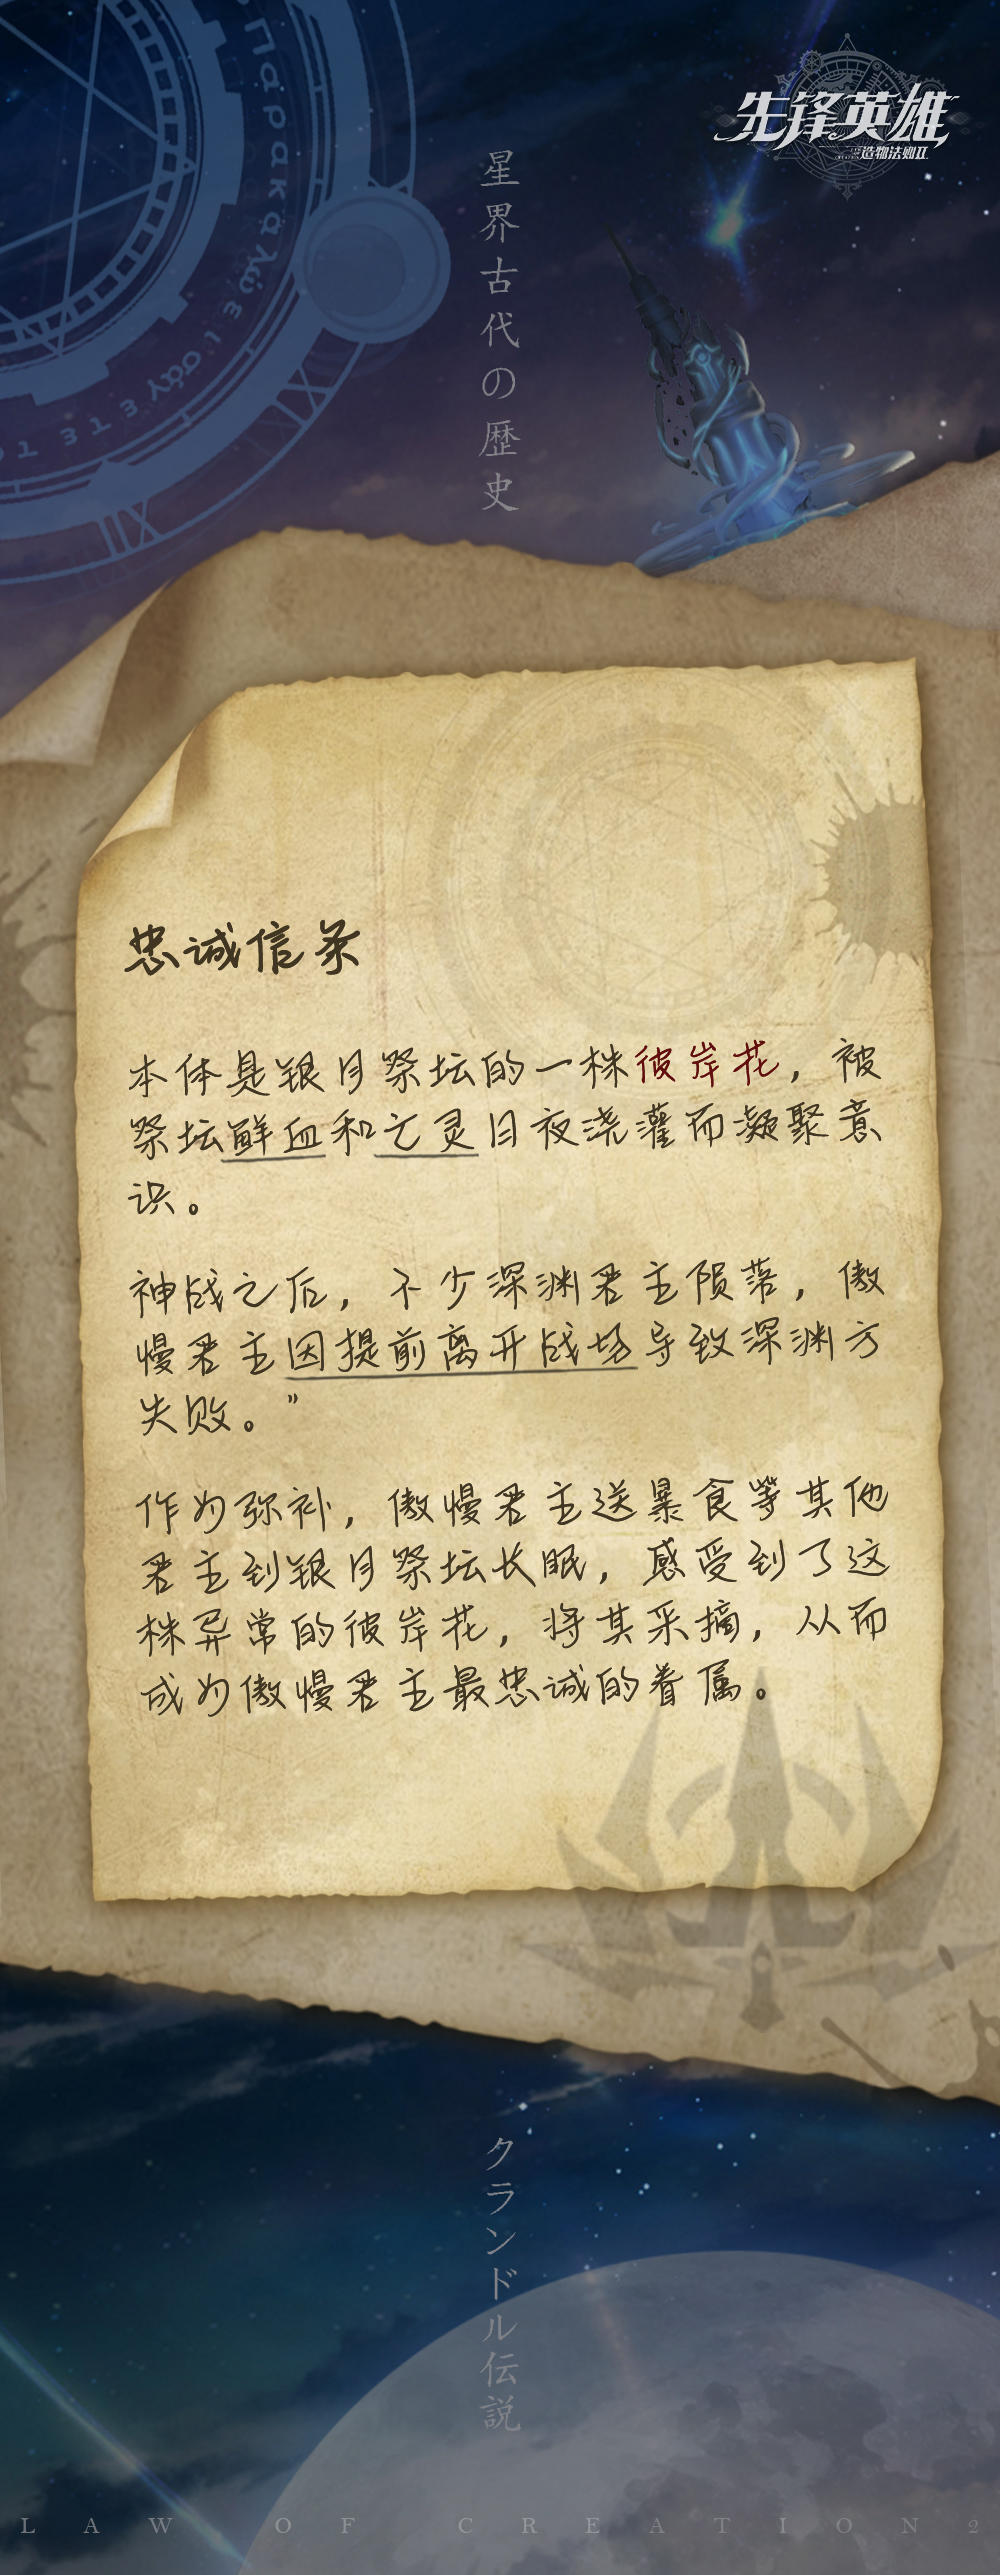 先锋英雄
造物法则II
星界古代の歴史
忠诚信条
本体是银月祭坛的一株彼岸花，被
祭坛鲜血和亡灵日夜浇灌而凝聚意
识。
神战之后，不少深渊君主陨落，傲
慢君主因提前离开战场导致深渊方
失败。”
作为弥补，傲慢君主送暴食等其他
君主到银月祭坛长眠，感受到了这
株异常的彼岸花，将其采摘，从而
成为傲慢君主最忠诚的眷属。
クランドル伝説
LAW OF CREATION2